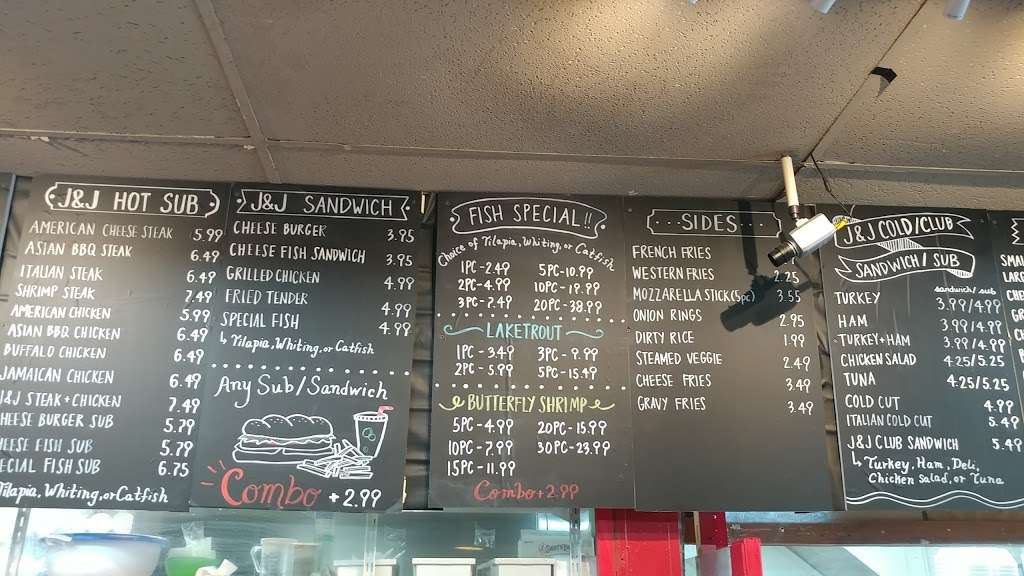 J&J HOT SUB
AMERICAN CHEESE STEAK 5.99
ASIAN BBQ STEAK 6.49
ITALIAN STEAK 6.49
SHRIMP STEAK 7.49
AMERICAN CHICKEN 5.99
ASIAN BBQ CHICKEN 6.49
BUFFALO CHICKEN 6.49
JAMAICAN CHICKEN 6.49
J&J STEAK + CHICKEN 7.49
CHEESE BURGER SUB 5.79
CHEESE FISH SUB 5.79
SPECIAL FISH SUB 6.75
Tilapia, Whiting, or Catfish
J&J SANDWICH
CHEESE BURGER 3.95
CHEESE FISH SANDWICH 3.95
GRILLED CHICKEN 4.99
FRIED TENDER 4.99
SPECIAL FISH 4.99
Tilapia, Whiting, or Catfish
Any Sub/Sandwich
Combo + 2.99
FISH SPECIAL!!
Choice of Tilapia, Whiting, or Catfish
1PC - 2.49 5PC - 10.99
2PC - 4.99 10PC - 19.99
3PC - 7.49 20PC - 38.99
LAKETROUT
1PC - 3.49 3PC - 9.99
2PC - 5.99 5PC - 15.49
BUTTERFLY SHRIMP
5PC - 4.99 20PC - 15.99
10PC - 7.99 30PC - 23.99
15PC - 11.99
Combo + 2.99
SIDES
FRENCH FRIES
WESTERN FRIES 2.25
MOZZARELLA STICK (5pc) 3.55
ONION RINGS 2.95
DIRTY RICE 1.99
STEAMED VEGGIE 2.49
CHEESE FRIES 3.49
GRAVY FRIES 3.49
J&J COLD/CLUB
SANDWICH/SUB
sandwich/sub
TURKEY 3.99/4.99
HAM 3.99/4.99
TURKEY+HAM 3.99/4.99
CHICKEN SALAD 4.25/5.25
TUNA 4.25/5.25
COLD CUT 4.99
ITALIAN COLD CUT 5.49
J&J CLUB SANDWICH 5.49
Turkey, Ham, Deli,
Chicken Salad, or Tuna